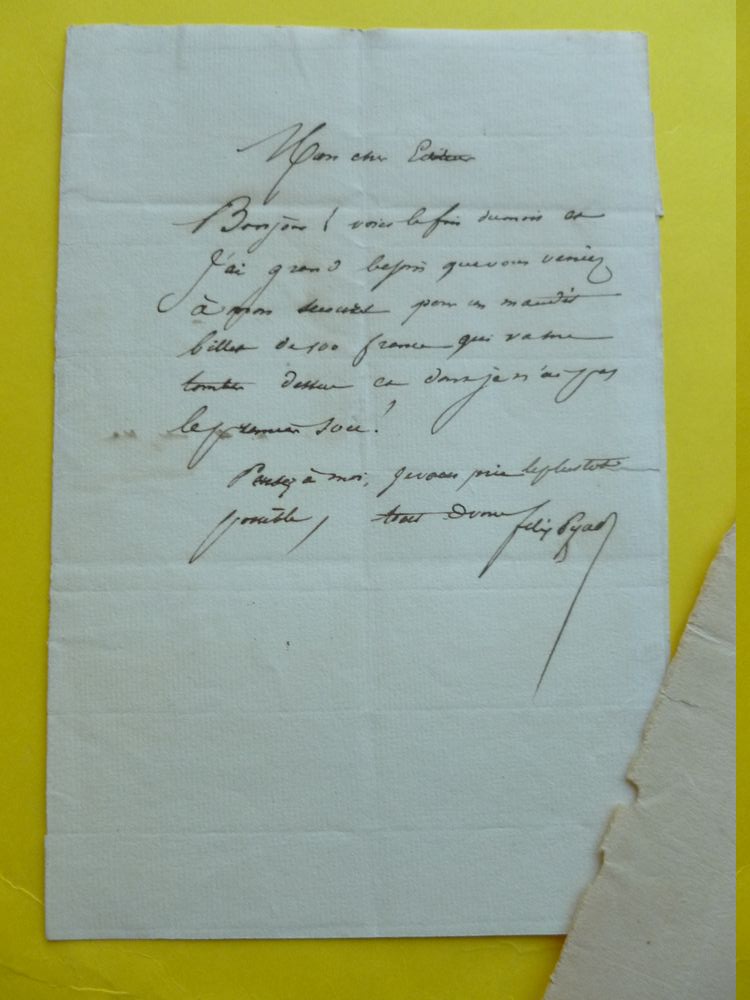 Mon cher Editeur
Bonjour ! voici la fin du mois et
j'ai grand besoin que vous veniez
à mon secours pour un maudit
billet de 500 francs qui va me
tomber dessus et dont je n'ai pas
le premier sou !
Pensez à moi, je vous prie le plus tot
possible, tout à vous Felix Pyat